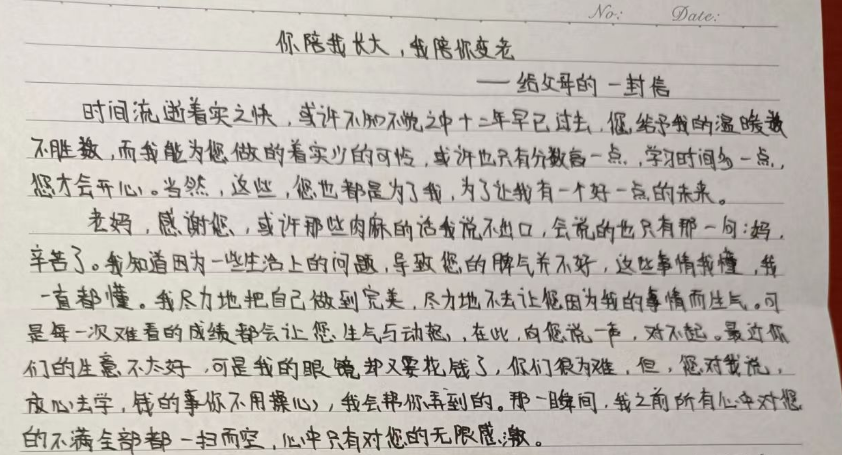 No: Date:
你陪我长大，我陪你变老
——给父母的一封信
时间流逝着实之快，或许不知不觉之中十二年早已过去，您给予我的温暖数
不胜数，而我能为您做的着实少的可怜，或许也只有分数高一点，学习时间多一点，
您才会开心。当然，这些，您也都是为了我，为了让我有一个好一点的未来。
老妈，感谢您，或许那些肉麻的话我说不出口，会说的也只有那一句：妈，
辛苦了。我知道因为一些生活上的问题，导致您的脾气并不好，这些事情我懂，我
一直都懂。我尽力地把自己做到完美，尽力地不去让您因为我的事情而生气。可
是每一次难看的成绩都会让您生气与动怒，在此，向您说一声，对不起。最近你
们的生意不太好，可是我的眼镜却又要花钱了，你们很为难，但，您对我说，
放心去学，钱的事你不用操心，我会帮你弄到的。那一瞬间，我之前所有心中对您
的不满全部都一扫而空，心中只有对您的无限感激。